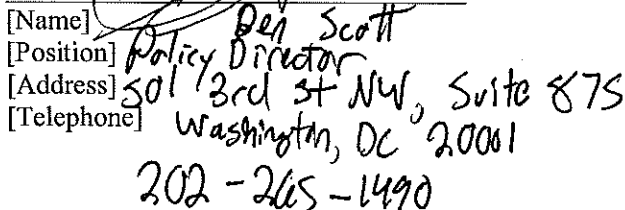 [Name] Ben Scott
[Position] Policy Director
[Address] 501 3rd St NW, Suite 875
[Telephone] Washington, DC 20001
202-265-1490